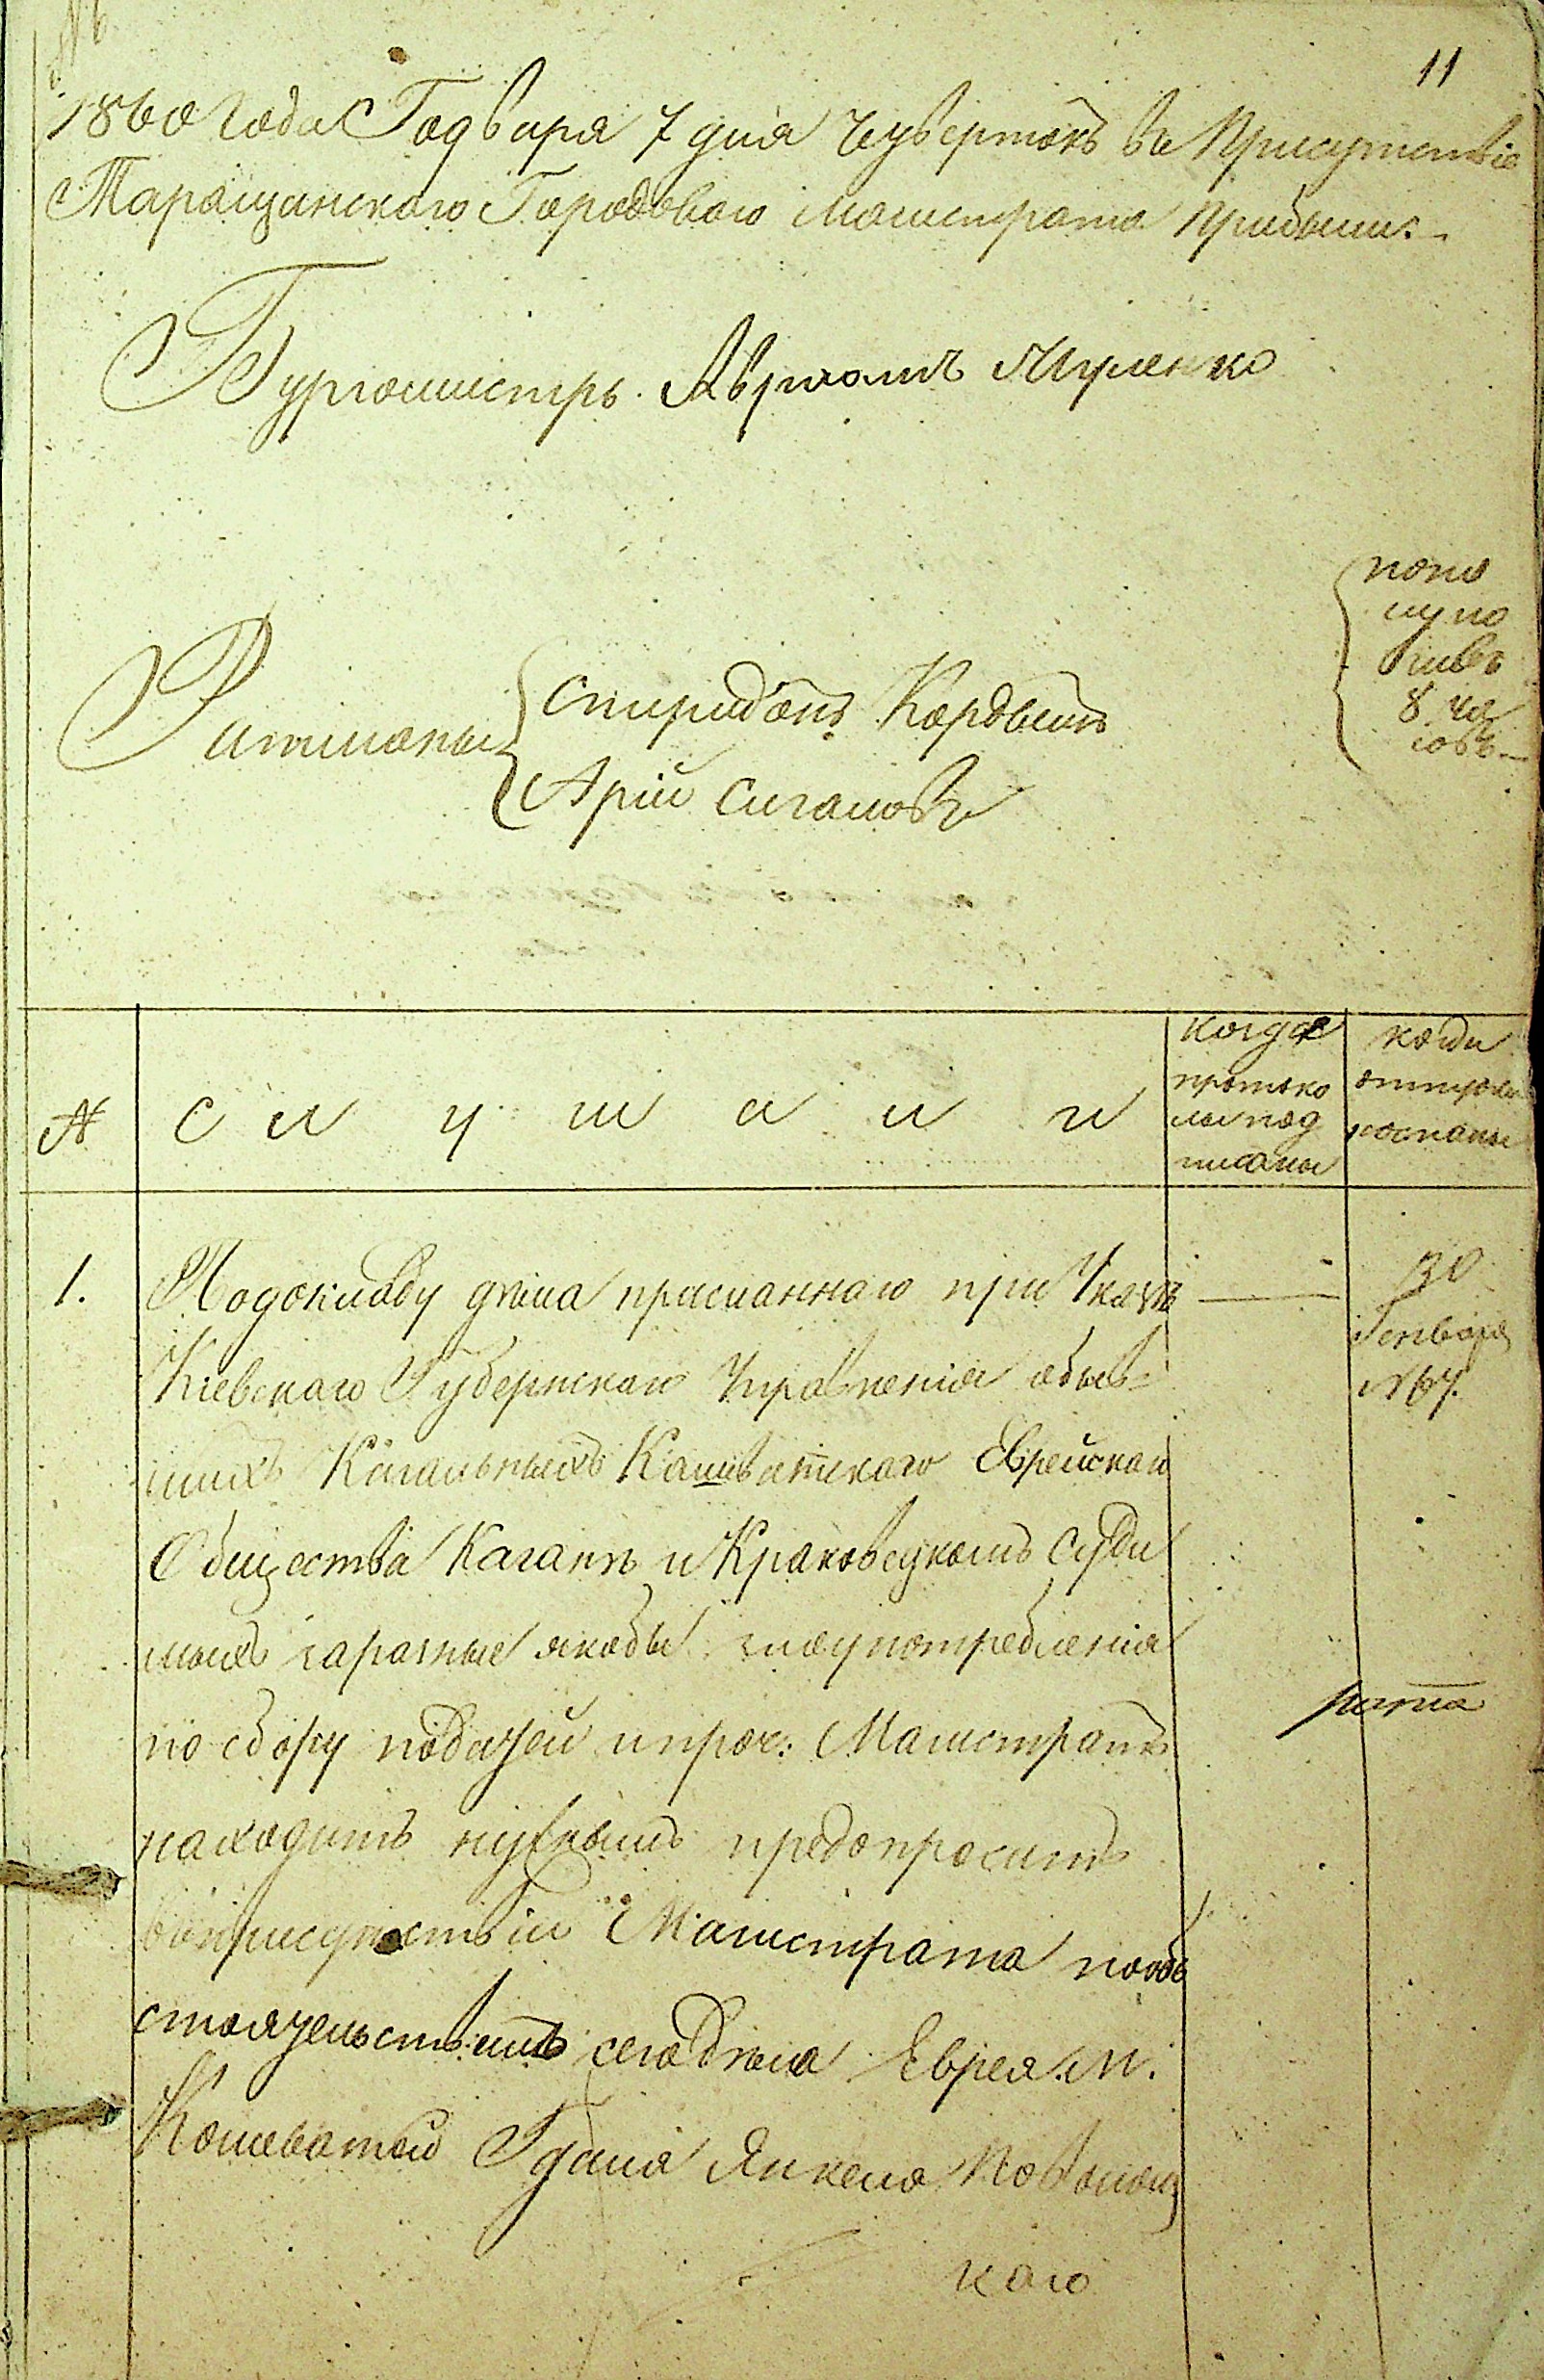 11
1860 года Генваря 7 дня Чувертокъ въ Присутствіе
Таращанского Городоваго Магистрата Прибыли:
Бургомистръ Авраамъ
Ратманы
Спиридонъ Кордышъ
Арій Сигаловъ
попо
лу но
чи въ
8 ча
совъ
№
с л у ш а л и
когда
протоко
лы под
писаны
когда
отпуски
посланы
1.
По докладу дѣла присланнаго при Указѣ
Кіевскаго Губернскаго Правленія о быв-
шихъ Кагальныхъ Кошеватскаго Еврейскаго
Общества Каганѣ и Краковецкомъ Суди
мыхъ за разные якобы злоупотребленія
по сбору податей и проч: Магистратъ
находитъ нужнымъ предопросить
въ присутствіи Магистрата по об
стоятельствамъ сего дѣла Еврея м.
Кошеватой Янкеля
каго
30
Генваря